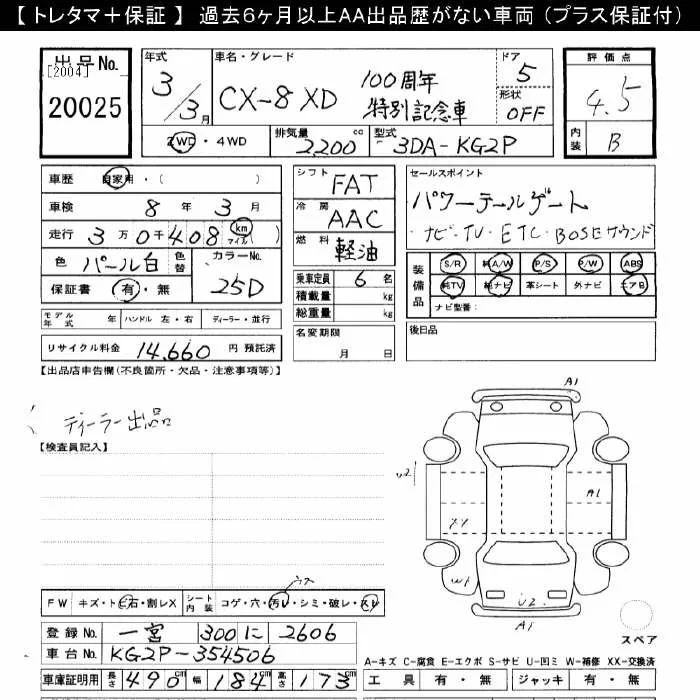 【 トレタマ＋保証 】 過去6ヶ月以上AA出品歴がない車両 (プラス保証付)
出品No.
[2004]
20025
年式
3/3月
車名・グレード
CX-8 XD 100周年
特別記念車
ドア
5
形状
OFF
2WD・4WD
排気量 2,200 cc
型式 3DA-KG2P
評価点
4.5
内装 B
車歴 自家用・( )
車検 8年 3月
走行 3万0千408 km マイル( )
色 パール白 色替
カラーNo. 25D
保証書 有・無
モデル年式 年 ハンドル 左・右 ディーラー・並行
リサイクル料金 14,660 円 預託済
シフト FAT
冷房 AAC
燃料 軽油
乗車定員 6 名
積載量 kg
総重量 kg
名変期限
月 日
セールスポイント
パワーテールゲート
・ナビ・TV・ETC・BOSEサウンド
装備品
S/R 純A/W P/S P/W ABS
純TV 純ナビ 革シート 外ナビ エアB
ナビ型番:
後日品
【出品店申告欄(不良箇所・欠品・注意事項等)】
ディーラー出品
【検査員記入】
A1
U2
A1
XX
W1
U2
A1
スペア
FW キズ・トビ石・割レX
シート内装 コゲ・穴・汚レ・シミ・破レ・スレ
ウス
登録No. 一宮 300 に 2606
車台No. KG2P-354506
車庫証明用 長さ 490 cm 幅 184 cm 高さ 173 cm
A-キズ C-腐食 E-エクボ S-サビ U-凹ミ W-補修 XX-交換済
工具 有・無 ジャッキ 有・無